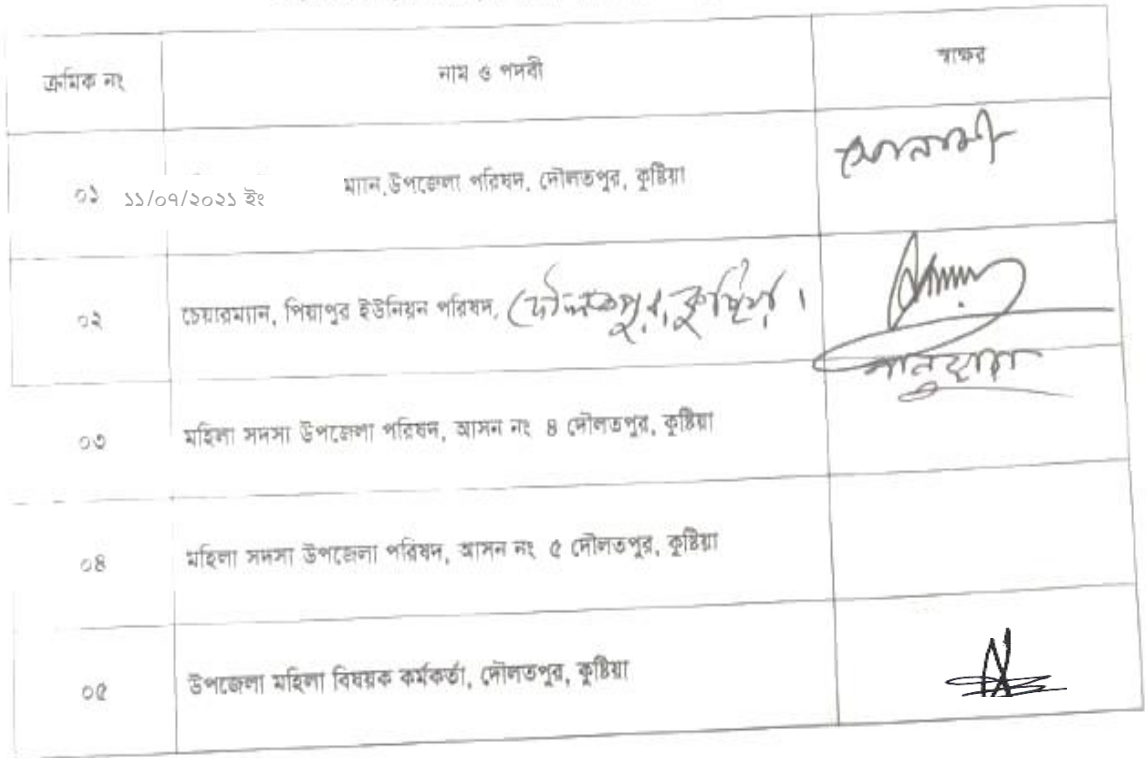 ক্রমিক নং নাম ও পদবী স্বাক্ষর
০১ ১১/০৭/২০২১ ইং ম্যান,উপজেলা পরিষদ, দৌলতপুর, কুষ্টিয়া
০২ চেয়ারম্যান, পিয়াপুর ইউনিয়ন পরিষদ, দৌলতপুর, কুষ্টিয়া।
০৩ মহিলা সদস্য উপজেলা পরিষদ, আসন নং ৪ দৌলতপুর, কুষ্টিয়া
০৪ মহিলা সদস্য উপজেলা পরিষদ, আসন নং ৫ দৌলতপুর, কুষ্টিয়া
০৫ উপজেলা মহিলা বিষয়ক কর্মকর্তা, দৌলতপুর, কুষ্টিয়া